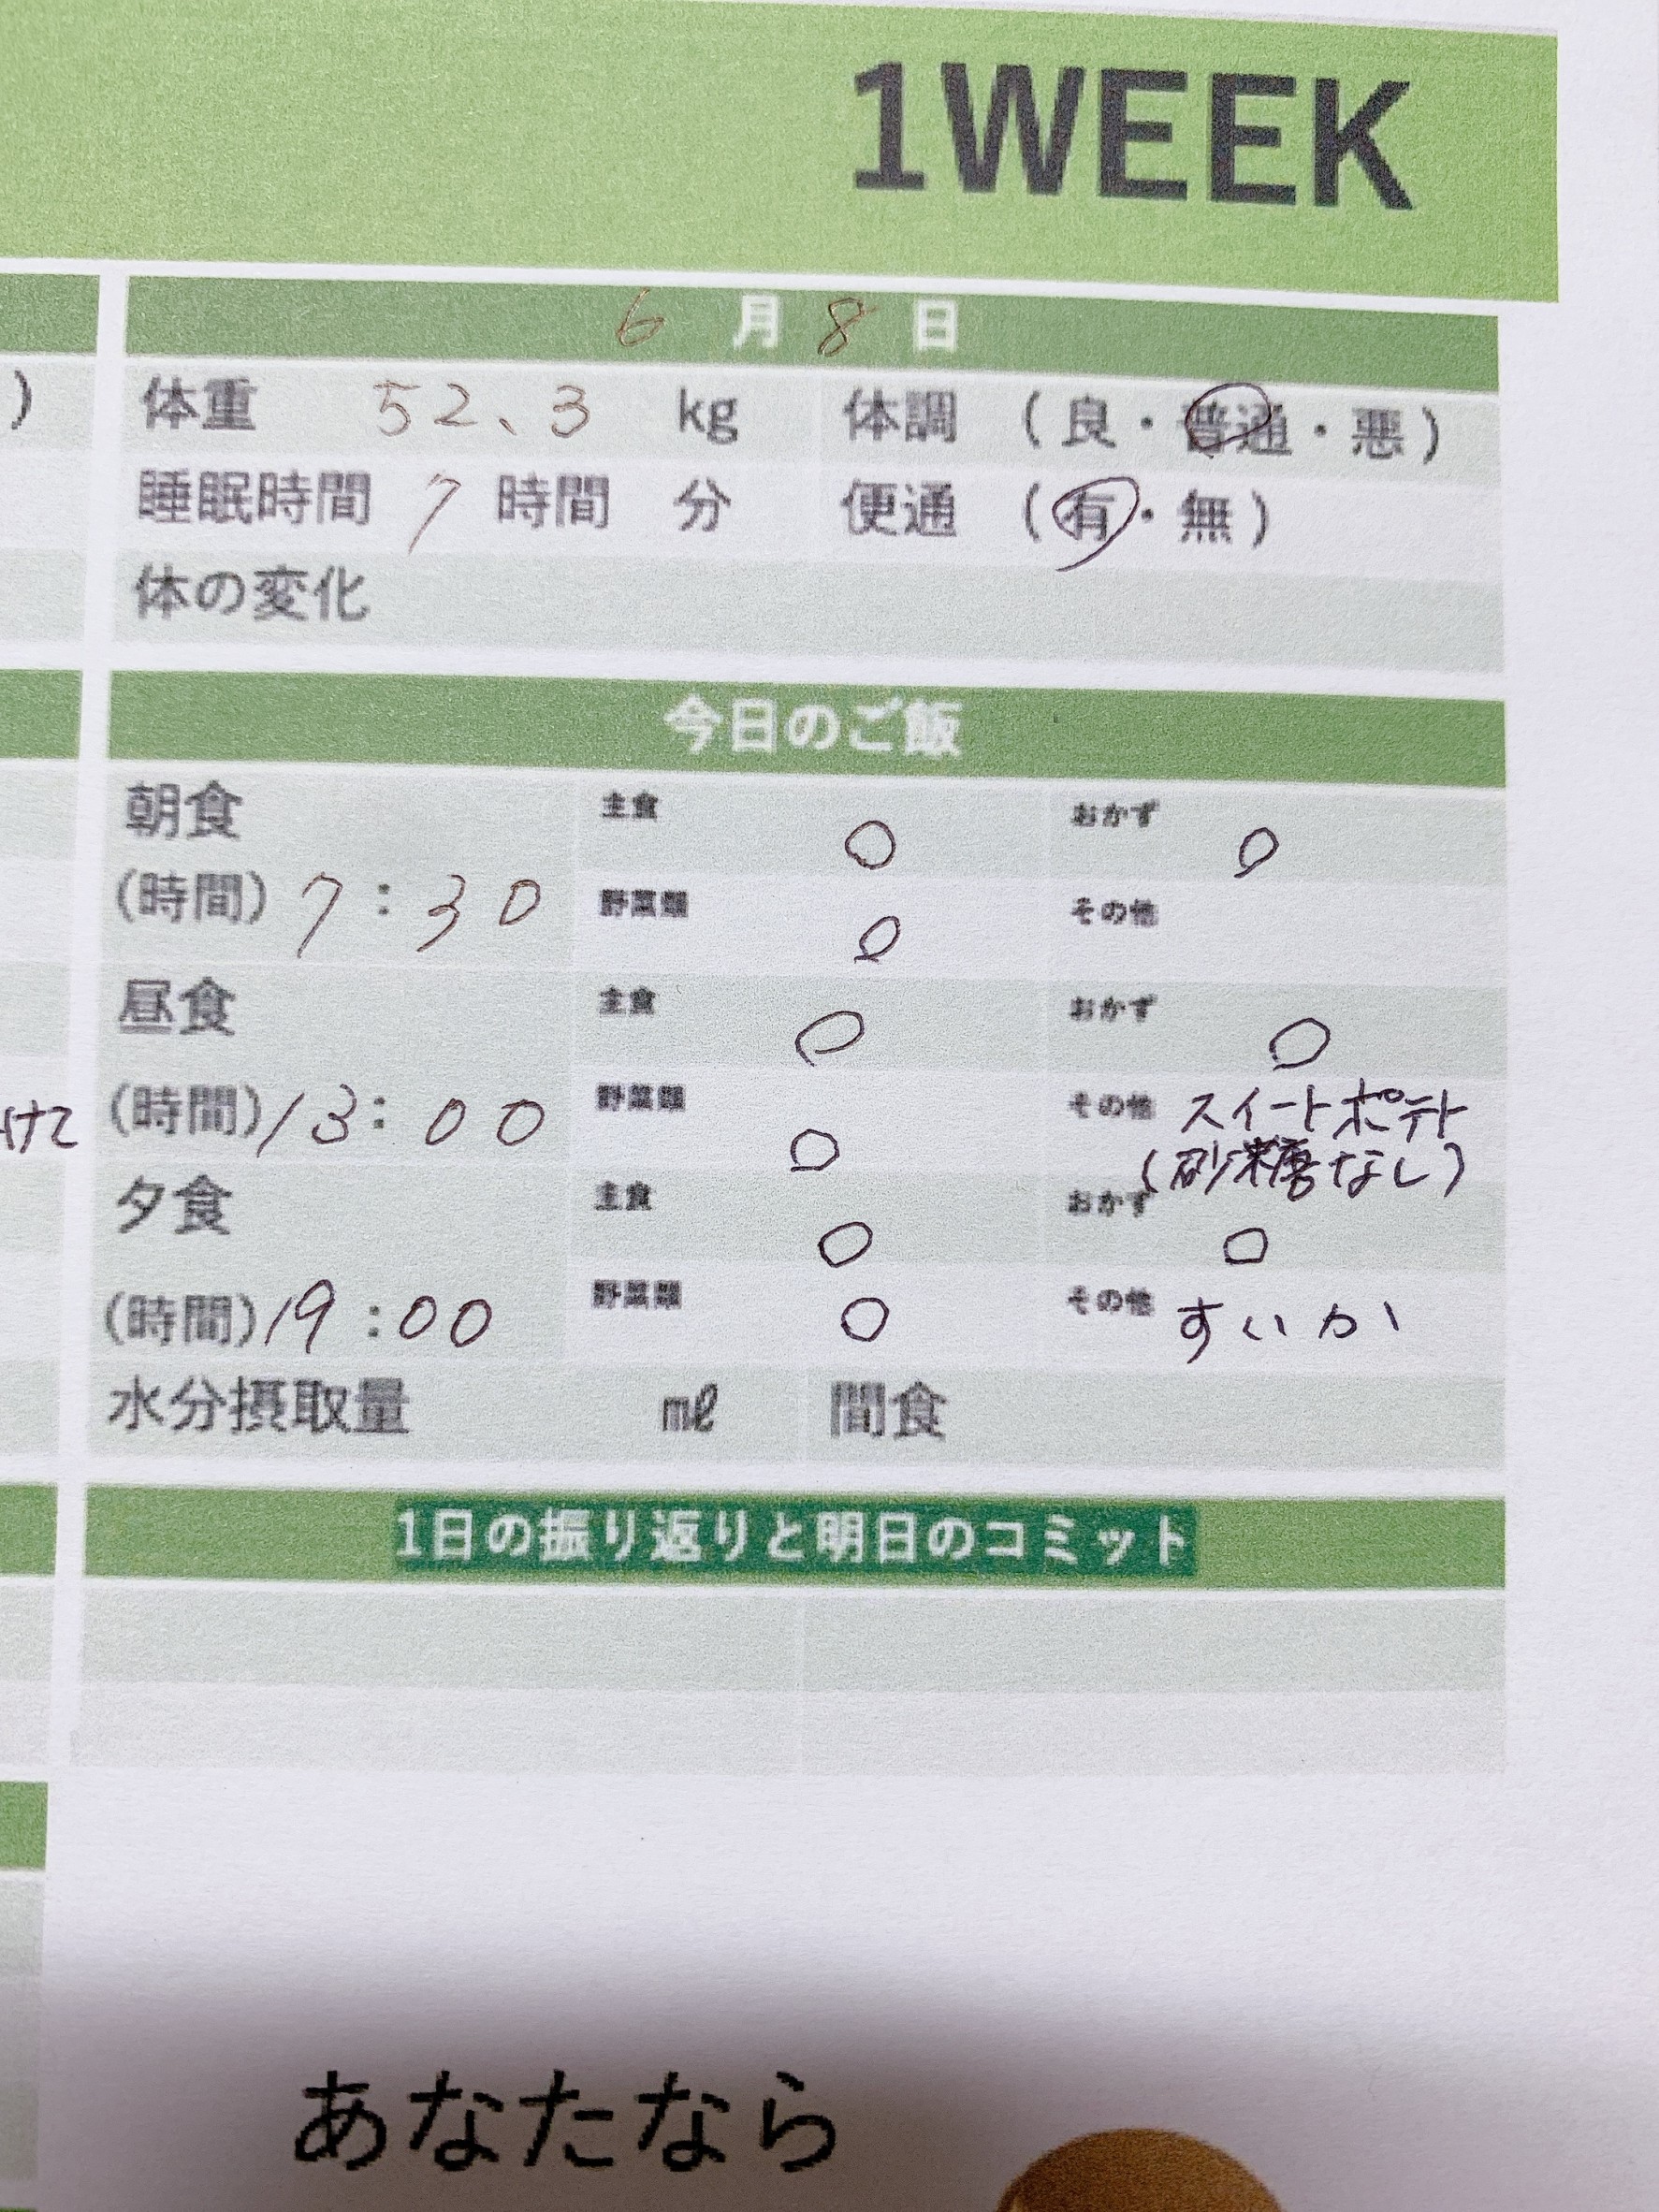 1WEEK
6月8日
)
体重 52.3 kg 体調 (良・普通・悪)
睡眠時間 7 時間 分 便通 (有・無)
体の変化
今日のご飯
朝食 主食 ○ おかず ○
(時間) 7:30 野菜類 ○ その他
昼食 主食 ○ おかず ○
(時間) 13:00 野菜類 ○ その他 スイートポテト
(砂糖なし)
夕食 主食 ○ おかず ○
(時間) 19:00 野菜類 ○ その他 すいか
水分摂取量 ㎖ 間食
1日の振り返りと明日のコミット
あなたなら